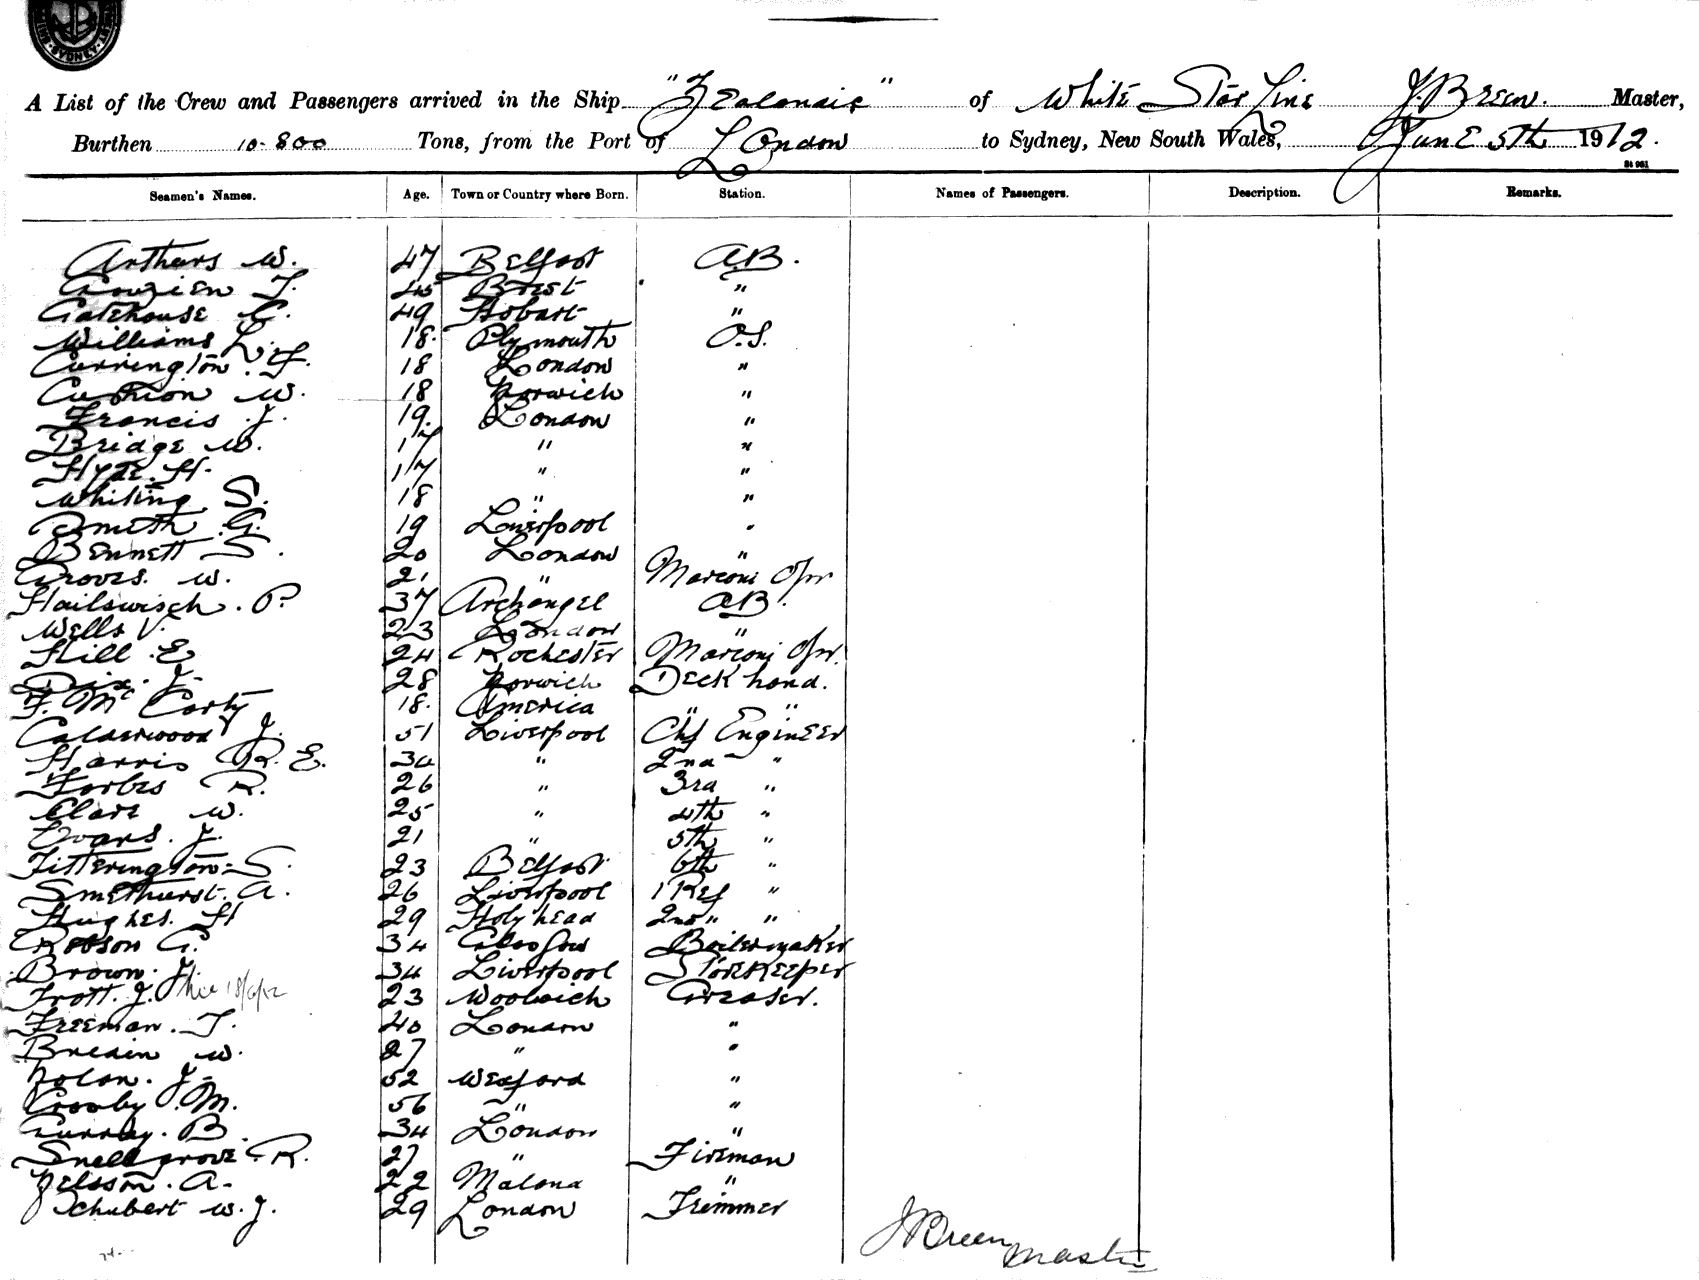 SYDNEY
A List of the Crew and Passengers arrived in the Ship "Zealandic" of White Star Line J. Breen. Master,
Burthen 10-800 Tons, from the Port of London to Sydney, New South Wales, June 5th 1912.
Seamen's Names. Age. Town or Country where Born. Station. Names of Passengers. Description. Remarks.
Arthurs W. 47 Belfast A.B.
T. 45 Brest "
Gatehouse C. 49 Hobart "
Williams L. 18. Plymouth O.S.
Currington. F. 18 London "
Cushion W. 18 Norwich "
Francis J. 19. London "
Bridge W. 17 " "
Hyde. H. 17 " "
Whiting S. 18 " "
Smith G. 19 Liverpool "
Bennett S. 20 London "
Groves. W. 21 " Marconi Opr
Hailswisch. P. 37 Archangel A.B.
Wells V. 23 London "
Hill. E 24 Rochester Marconi Opr.
Dix. J. 28 Norwich Deck hand.
F. McCarty 18. America " "
Calderwood J. 51 Liverpool Chf Engineer
Harris R. E. 30 " 2nd "
Forbes R. 26 " 3rd "
Clare W. 25 " 4th "
Evans. J. 21 " 5th "
Titterington. S. 23 Belfast 6th "
Smethurst. A. 26 Liverpool 1 Ref "
Hughes. H 29 Holyhead 2nd " "
Robson G. 34 Glasgow Boilermaker
Brown. J. 34 Liverpool Storekeeper
Trott. J. 23 Woolwich Greaser.
Freeman. T. 40 London "
Bredin W. 27 " "
Nolan. J. 52 Wexford "
Crosby. M. 56 " "
Curray. B. 34 London "
Snellgrove. R. 27 " Fireman
A. 22 "
Schubert W. J. 29 London Trimmer
J Breen
Master